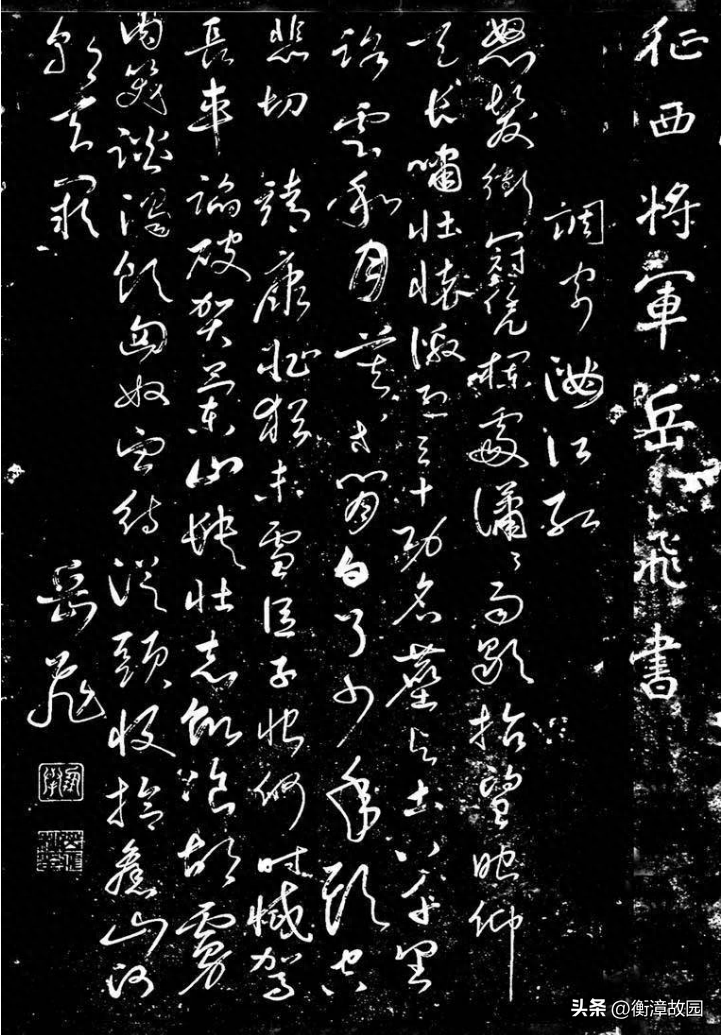 征西将軍岳飛書
調寄滿江紅
怒髮衝冠凭欄處瀟〻雨歇抬望眼仰
天長嘯壯懷激烈三十功名塵與土八千里
路雲和月莫等閒白了少年頭空
悲切 靖康恥猶未雪臣子恨何時滅駕
長車 踏破賀蘭山缺壯志飢飡胡虜
肉笑談渴飲匈奴血待從頭收拾舊山河
朝天闕
岳飛
头条 @衡漳故园